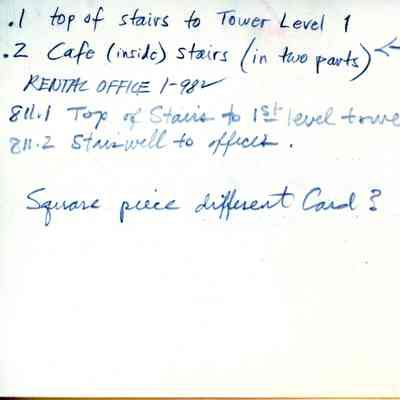 .1 top of stairs to Tower Level 1
.2 Cafe (inside) stairs (in two parts)
RENTAL OFFICE 1-98
811.1 Top of Stairs to 1st level towe
811.2 Stairwell to offices.
Square piece different Card?